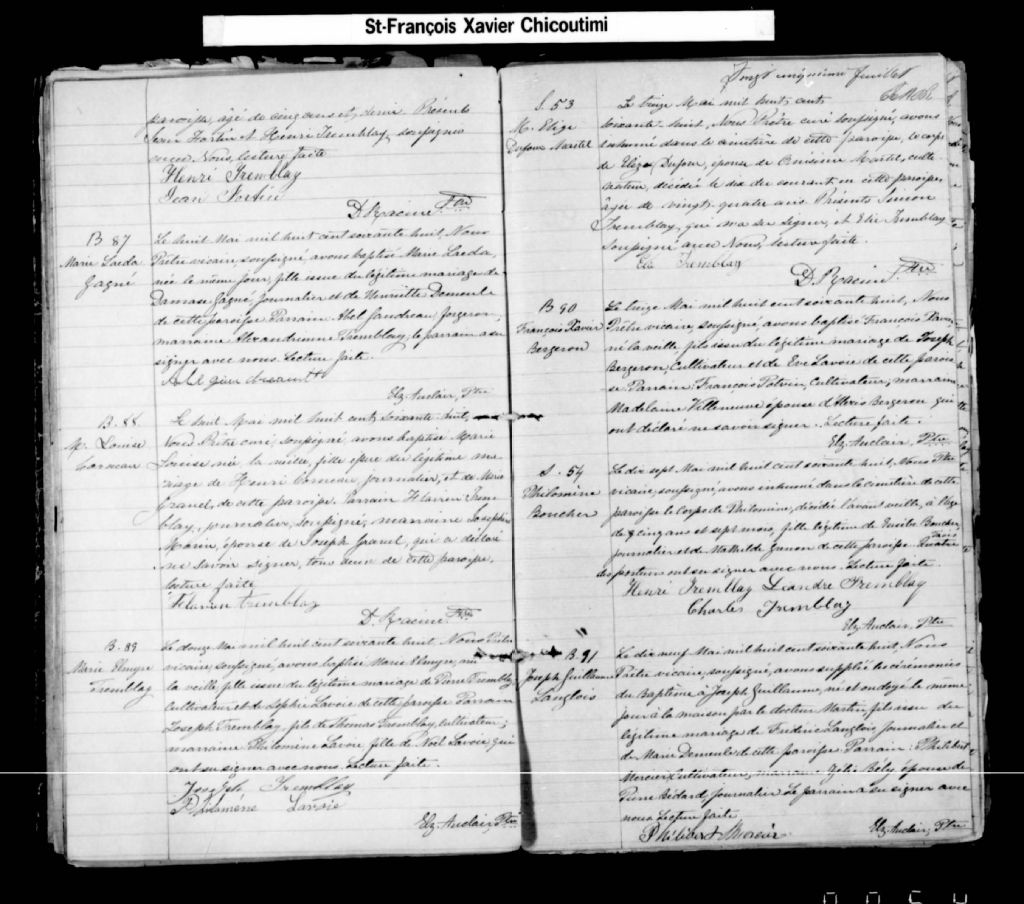 St-François Xavier Chicoutimi
paroisse, âgé de cinq ans et demi. Présents
Jean Fortin et Henri Tremblay, soussignés
avec Nous, lecture faite
Henri Tremblay
Jean Fortin
D. Racine Ptre
B 87
Marie Laeda
Gagné
Le huit Mai mil huit cent soixante huit, Nous
Prêtre vicaire, soussigné, avons baptisé Marie Laeda,
née le même jour, fille issue du légitime mariage de
Damase Gagné, journalier et de Henriette Demeule
de cette paroisse Parrain Abel Gaudreau, forgeron,
marraine Alexandrienne Tremblay, le parrain a su
signer avec nous. Lecture faite.
Elz. Auclair, Ptre
B. 88.
M. Louise
Le huit Mai mil huit cent soixante-huit,
Nous Prêtre curé, soussigné avons baptisé Marie
Louise née la veille, fille issue du légitime ma
riage de Henri journalier, et de Marie
Gravel, de cette paroisse. Parrain Flavien Trem
blay, journalier, soussigné, marraine Josephine
Morin, épouse de Joseph Gravel, qui a déclaré
ne savoir signer, tous deux de cette paroisse,
lecture faite
Flavien Tremblay
D. Racine Ptre
B. 89
Marie Elmyre
Tremblay
Le douze Mai mil huit cent soixante huit, Nous Prêtre
vicaire, soussigné, avons baptisé Marie Elmyre, née
la veille, fille issue du légitime mariage de Pierre Tremblay
cultivateur et de Sophie Lavoie de cette paroisse Parrain
Joseph Tremblay, fils de Thomas Tremblay, cultivateur;
marraine Philomène Lavoie fille de Noël Lavoie, qui
ont su signer avec nous. Lecture faite.
Joseph Tremblay
Philomène Lavoie
Elz. Auclair, Ptre
Vingt unième feuillet
S. 53
M. Elize
Dufour Martel
Le treize Mai mil huit cent
soixante-huit, Nous Prêtre curé soussigné, avons
inhumé dans le cimetière de cette paroisse, le corps
de Elize Dufour, épouse de Martel, culti-
vateur, décédée le dix du courant en cette paroisse
âgée de vingt-quatre ans Présents Simon
Tremblay, qui n'a su signer, et Elie Tremblay
soussigné avec Nous, lecture faite.
Elie Tremblay
D. Racine Ptre
B 90
François Xavier
Bergeron
Le treize Mai mil huit cent soixante huit, Nous
Prêtre vicaire, soussigné, avons baptisé François Xavier,
né la veille, fils issu du légitime mariage de Joseph
Bergeron, Cultivateur et de Eve Lavoie de cette parois-
se Parrain: François Potvin, Cultivateur; marraine
Madelaine Villeneuve épouse d'Alexis Bergeron qui
ont déclaré ne savoir signer. Lecture faite.
Elz. Auclair, Ptre
S. 54
Philomène
Boucher
Le dix sept Mai mil huit cent soixante huit, Nous Ptre
vicaire, soussigné, avons inhumé dans le cimetière de cette
paroisse le corps de Philomène, décédée l'avant veille, à l'âge
de cinq ans et sept mois, fille légitime de Boucher,
journalier et de Mathilde de cette paroisse
des porteurs ont su signer avec nous. Lecture faite.
Henri Tremblay Léandre Tremblay
Charles Tremblay
Elz. Auclair, Ptre
B. 91
Joseph Guillaume
Langlois
Le dix neuf Mai mil huit cent soixante huit, Nous
Prêtre vicaire, soussigné, avons suppléé les cérémonies
du Baptême à Joseph Guillaume, né et ondoyé le même
jour à la maison par le docteur Martin, fils issu du
légitime mariage de Frédéric Langlois journalier et
de Marie Demeule de cette paroisse Parrain: Philibert
Mercier Cultivateur, marraine Bély épouse de
Pierre Bédard journalier Le parrain a su signer avec
nous Lecture faite
Philibert Mercier
Elz. Auclair, Ptre